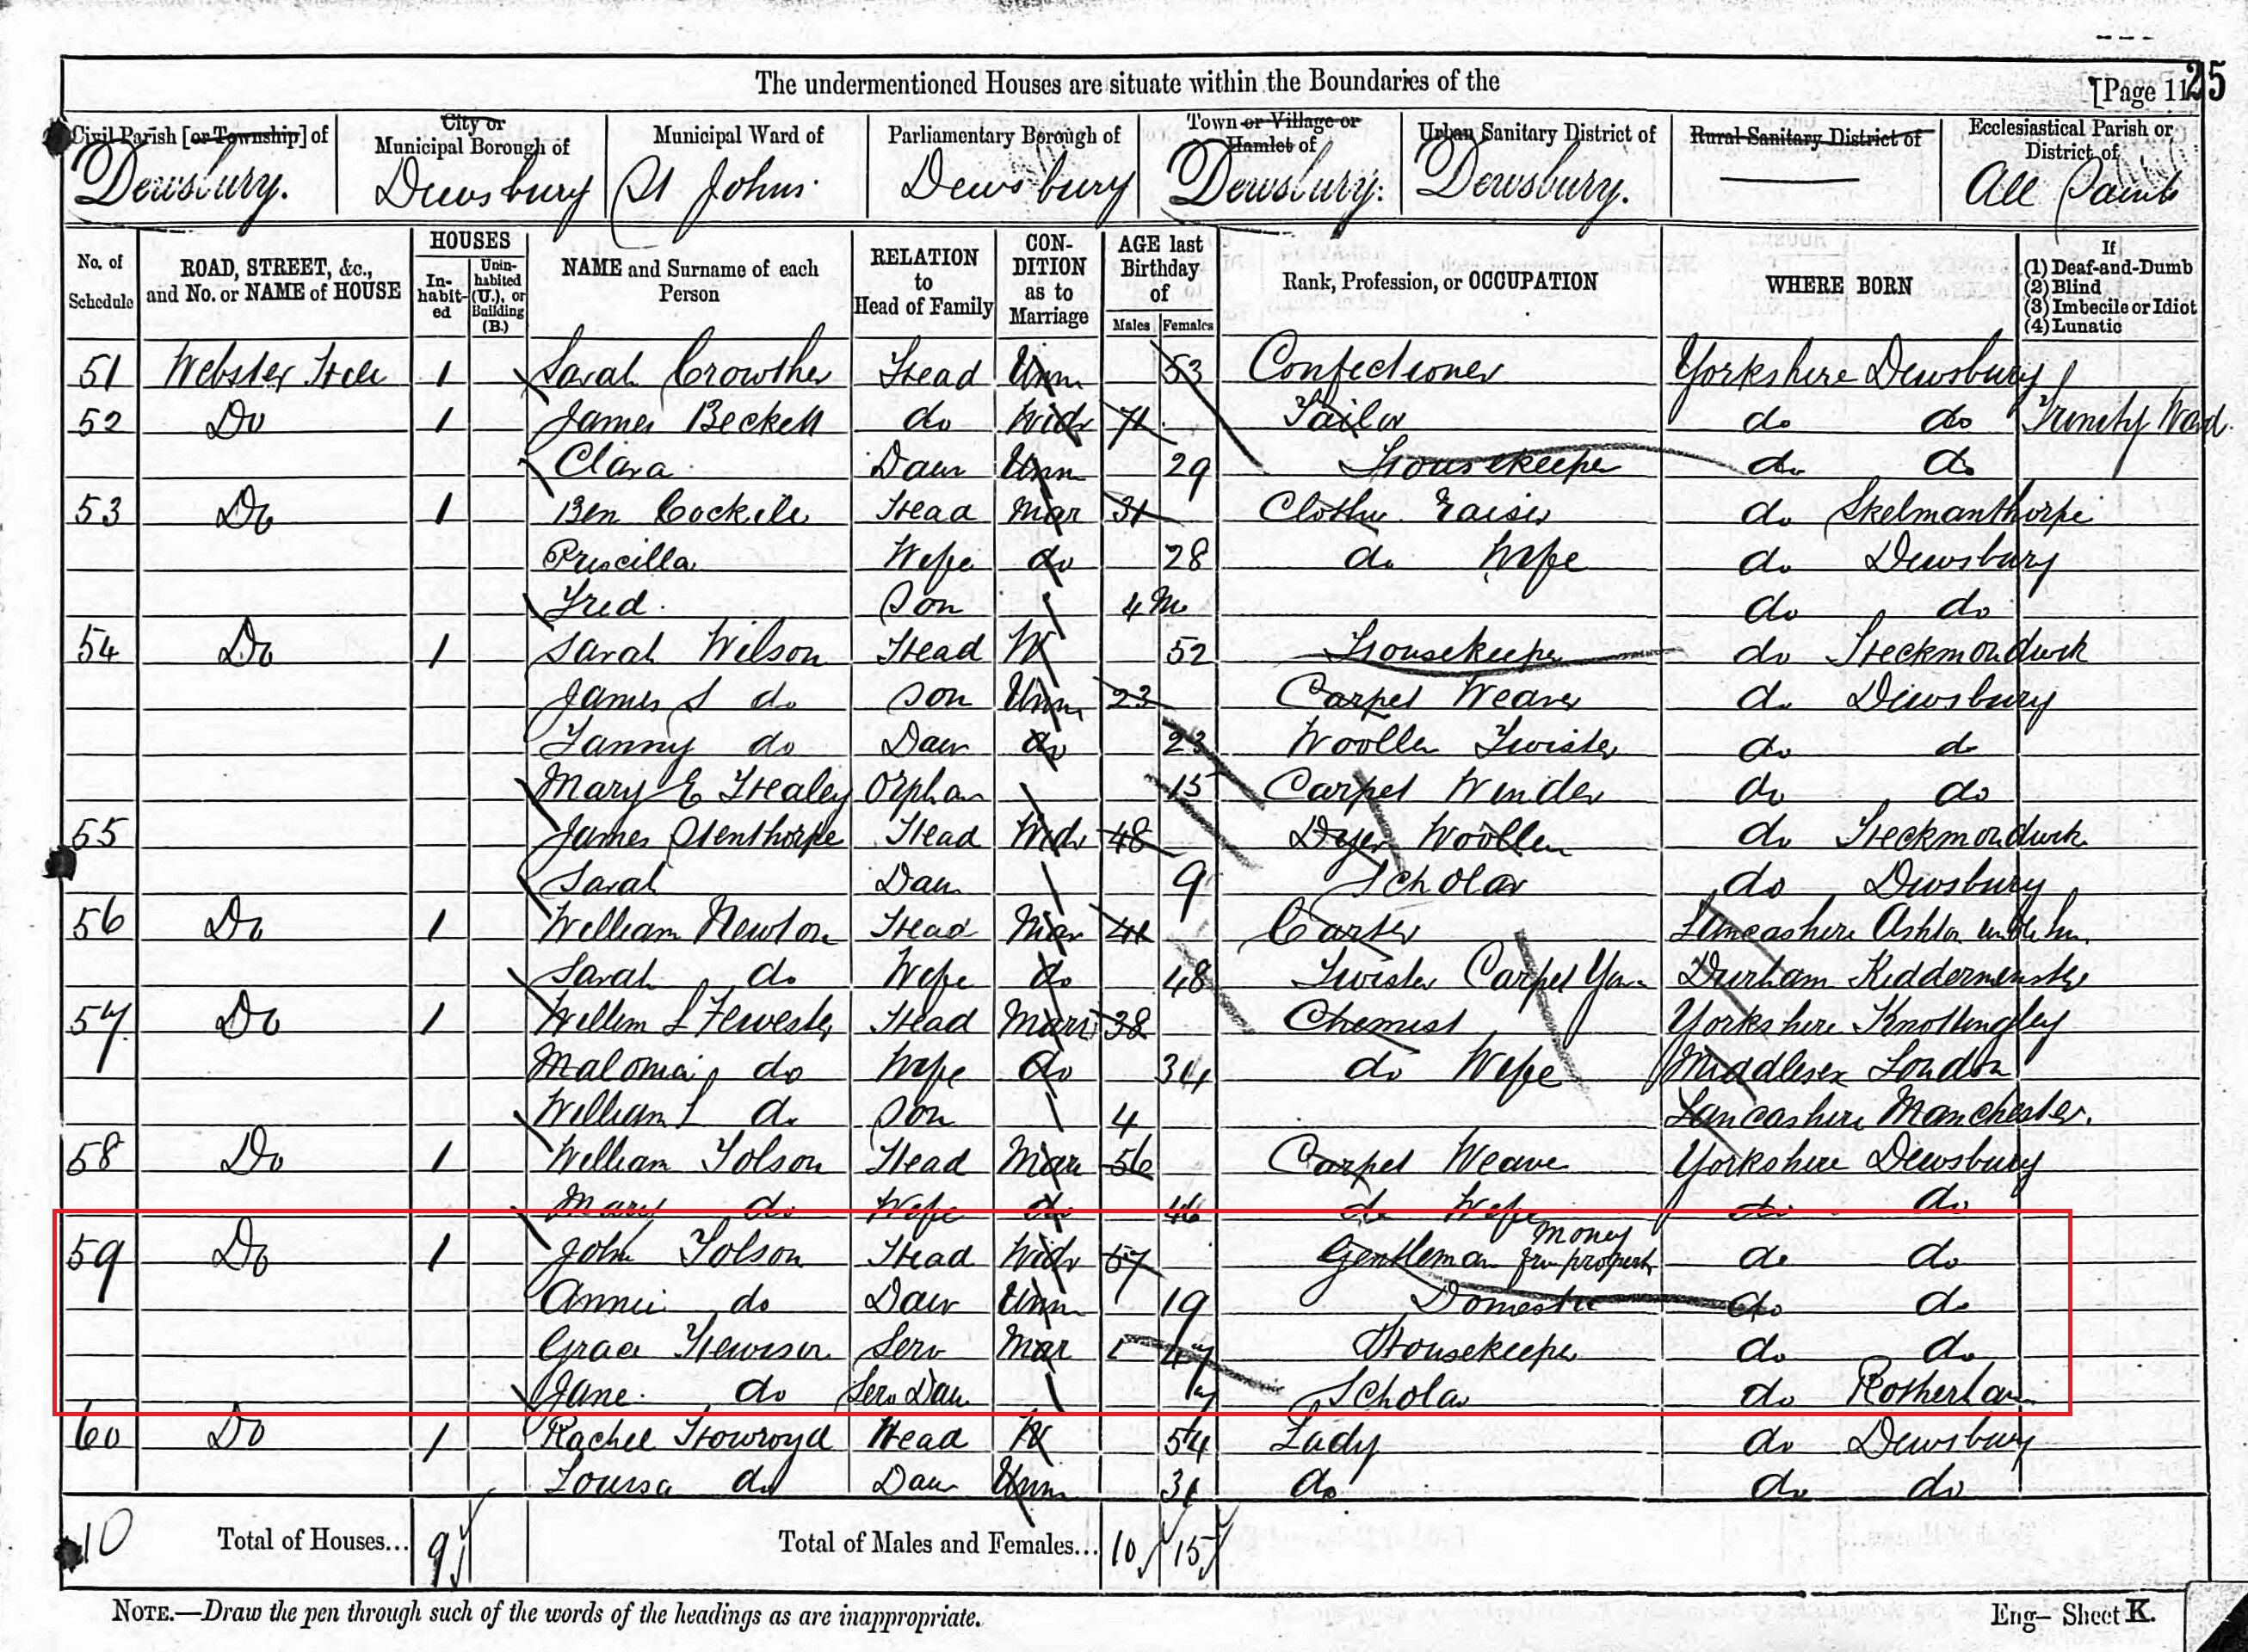 The undermentioned Houses are situate within the Boundaries of the
[Page 11
25
Civil Parish [or Township] of
City or Municipal Borough of
Municipal Ward of
Parliamentary Borough of
Town or Village or Hamlet of
Urban Sanitary District of
Rural Sanitary District of
Ecclesiastical Parish or District of
Dewsbury. Dewsbury St Johns Dewsbury Dewsbury. Dewsbury. All Saints
No. of Schedule
ROAD, STREET, &c., and No. or NAME of HOUSE
HOUSES
In-habit-ed
Unin-habited (U.), or Building (B.)
NAME and Surname of each Person
RELATION to Head of Family
CON-DITION as to Marriage
AGE last Birthday of
Males Females
Rank, Profession, or OCCUPATION
WHERE BORN
If
(1) Deaf-and-Dumb
(2) Blind
(3) Imbecile or Idiot
(4) Lunatic
51 Webster 1 Sarah Crowther Head Unm 53 Confectioner Yorkshire Dewsbury
52 Do 1 James Beckett do Widr 71 Tailor do do Trinity Ward
Clara Daur Unm 29 Housekeeper do do
53 Do 1 Ben Cockile Head Mar 31 Cloth Raiser do Skelmanthorpe
Priscilla Wife do 28 do Wife do Dewsbury
Fred Son 4 M do do
54 Do 1 Sarah Wilson Head W 52 Housekeeper do Heckmondwick
James S do Son Unm 23 Carpet Weaver do Dewsbury
Fanny do Daur do 23 Woollen Twister do do
Mary E Healey Orphan 15 Carpet Winder do do
55 James Head Widr 48 Dyer Woollen do Heckmondwick
Sarah Dau 9 Scholar do Dewsbury
56 Do 1 William Newton Head Mar Carter Lancashire Ashton
Sarah do Wife do 48 Twister Carpet Yarn Durham Kidderminster
57 Do 1 Willem L Fewester Head Marr 38 Chemist Yorkshire Knottingley
do Wife do 34 do Wife Middlesex London
William L do Son 4 Lancashire Manchester.
58 Do 1 William Tolson Head Mar 56 Carpet Weaver Yorkshire Dewsbury
Mary do Wife do 46 do Wife do do
59 Do 1 John Tolson Head Widr 57 Gentleman money fm property do do
Annie do Daur Unm 19 Domestic do do
Grace Hewison Serv Mar 47 Housekeeper do do
Jane do Serv Dau Scholar do Rotherham
60 Do 1 Rachel Howroyd Head W 54 Lady do Dewsbury
Louisa do Dau Unm 31 do do do
10 Total of Houses... 9 Total of Males and Females... 10 15
NOTE.—Draw the pen through such of the words of the headings as are inappropriate.
Eng— Sheet K.